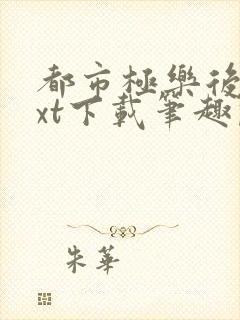 都市極樂後
xt下載筆趣
朱華